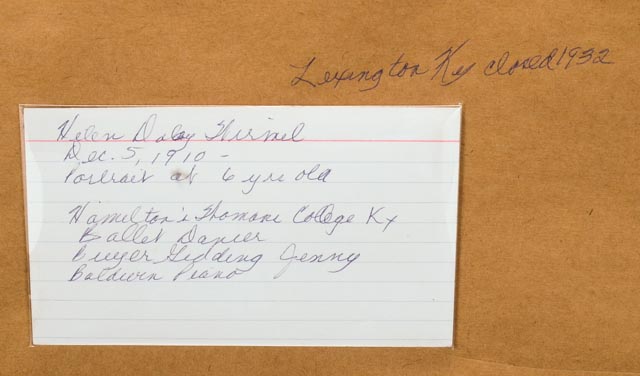 Lexington Ky closed 1932
Helen Daley
Dec. 5, 1910 -
Portrait at 6 yrs old
Hamilton's College Ky
Ballet Dancer
Buyer Gidding Jenny
Baldwin Piano